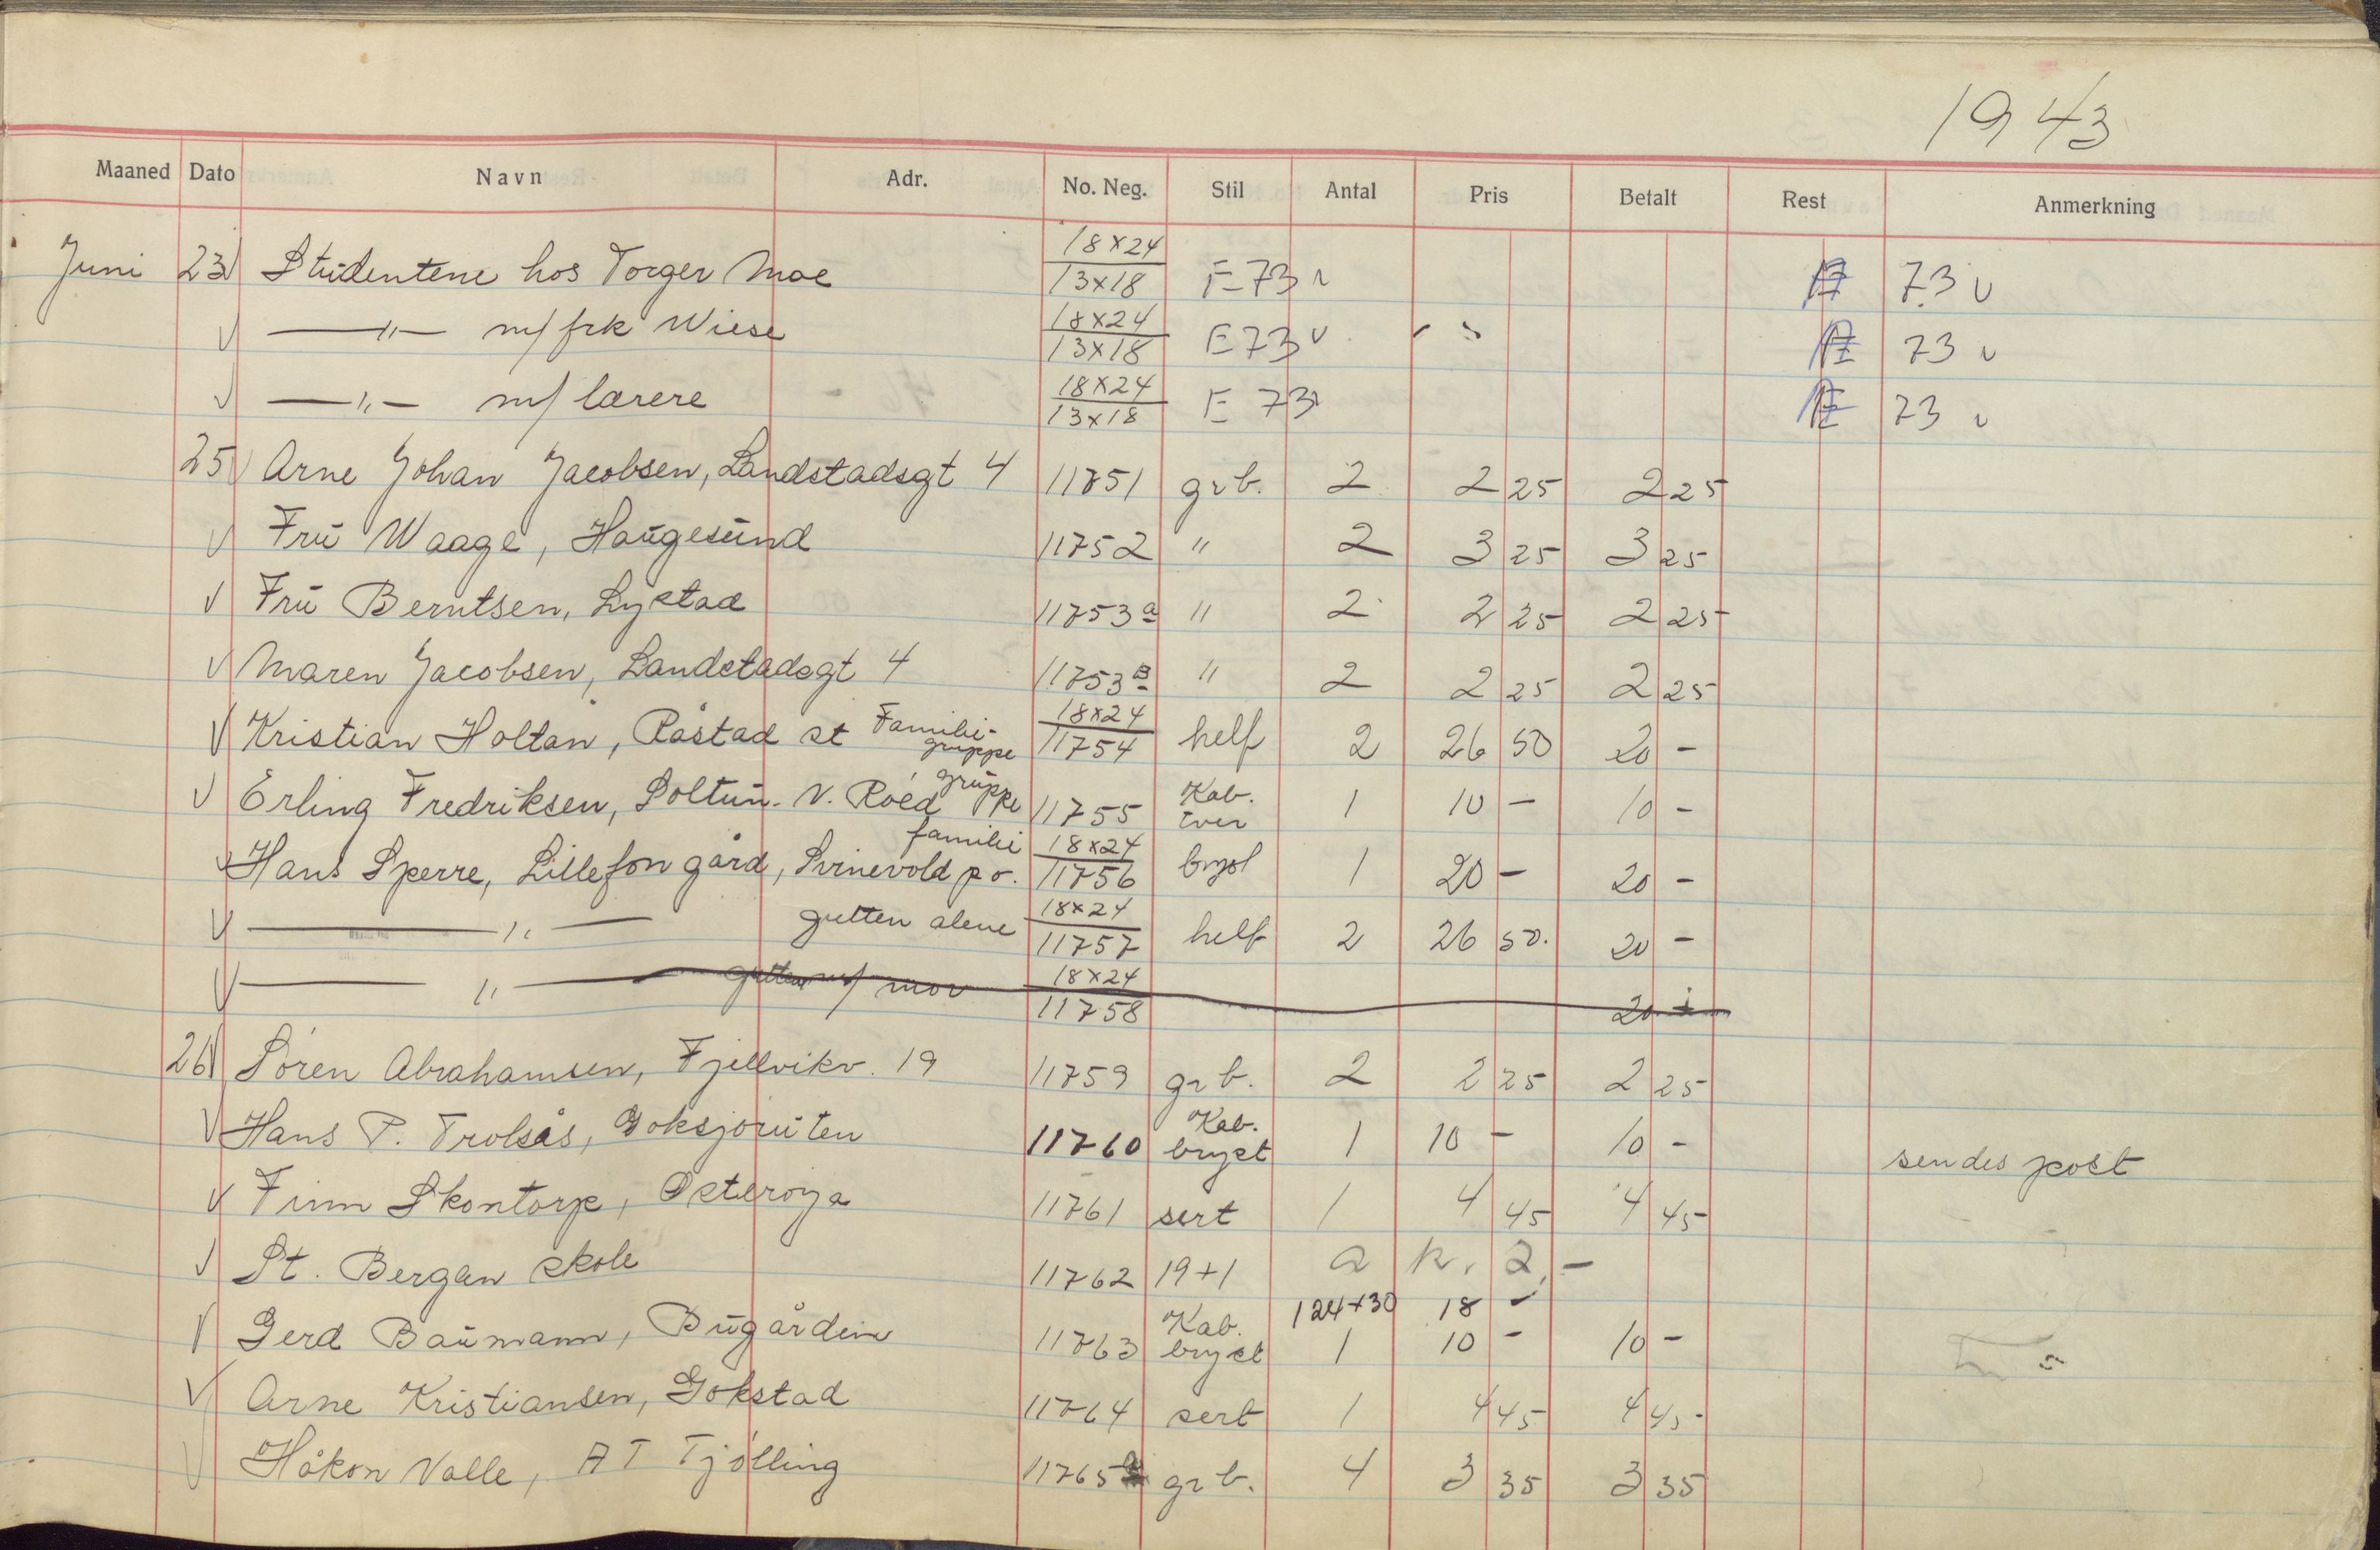 1943
Maaned Dato Navn Adr. No. Neg. Stil Antal Pris Betalt Rest Anmerkning
Juni 23 Studentene hos Torger Moe 18x24 / 13x18 E 73 73
—"— m/ frk Wiese 18x24 / 13x18 E 73 73
—"— m/ lærere 18x24 / 13x18 E 73 73
25 Arne Johan Jacobsen, Landstadsgt 4 11751 grb. 2 2 25 2 25
Fru Waage, Haugesund 11752 " 2 3 25 3 25
Fru Berntsen, Lystad 11753 a " 2 2 25 2 25
Maren Jacobsen, Landstadsgt 4 11753 B " 2 2 25 2 25
Kristian Holtan, Råstad st Familiegruppe 18x24 / 11754 helf 2 26 50 20 -
Erling Fredriksen, Soltun. V. Roed gruppe 11755 Kab. tver 1 10 - 10 -
Hans Sperre, Lillefon gård, Svinevold p.o. familie 18x24 / 11756 1 20 - 20 -
—"— gutten alene 18x24 / 11757 helf 2 26 50. 20 -
—"— gutten m/ mor 18x24 / 11758 20
26 Sören Abrahamsen, Fjellvikv. 19 11759 grb. 2 2 25 2 25
Hans P. Trolsås, Goksjöruten 11760 Kab. bryst 1 10 - 10 - sendes post
Finn Skontorp, Osteröya 11761 sert 1 4 45 4 45
St. Bergan skole 11762 19+1 a kr. 2,-
124+30 18 -
Gerd Baumann, Bugården 11763 Kab. bryst 1 10 - 10 -
Arne Kristiansen, Gokstad 11764 sert 1 4 45 4 45
Håkon Valle, AT Tjölling 11765 grb. 4 3 35 3 35